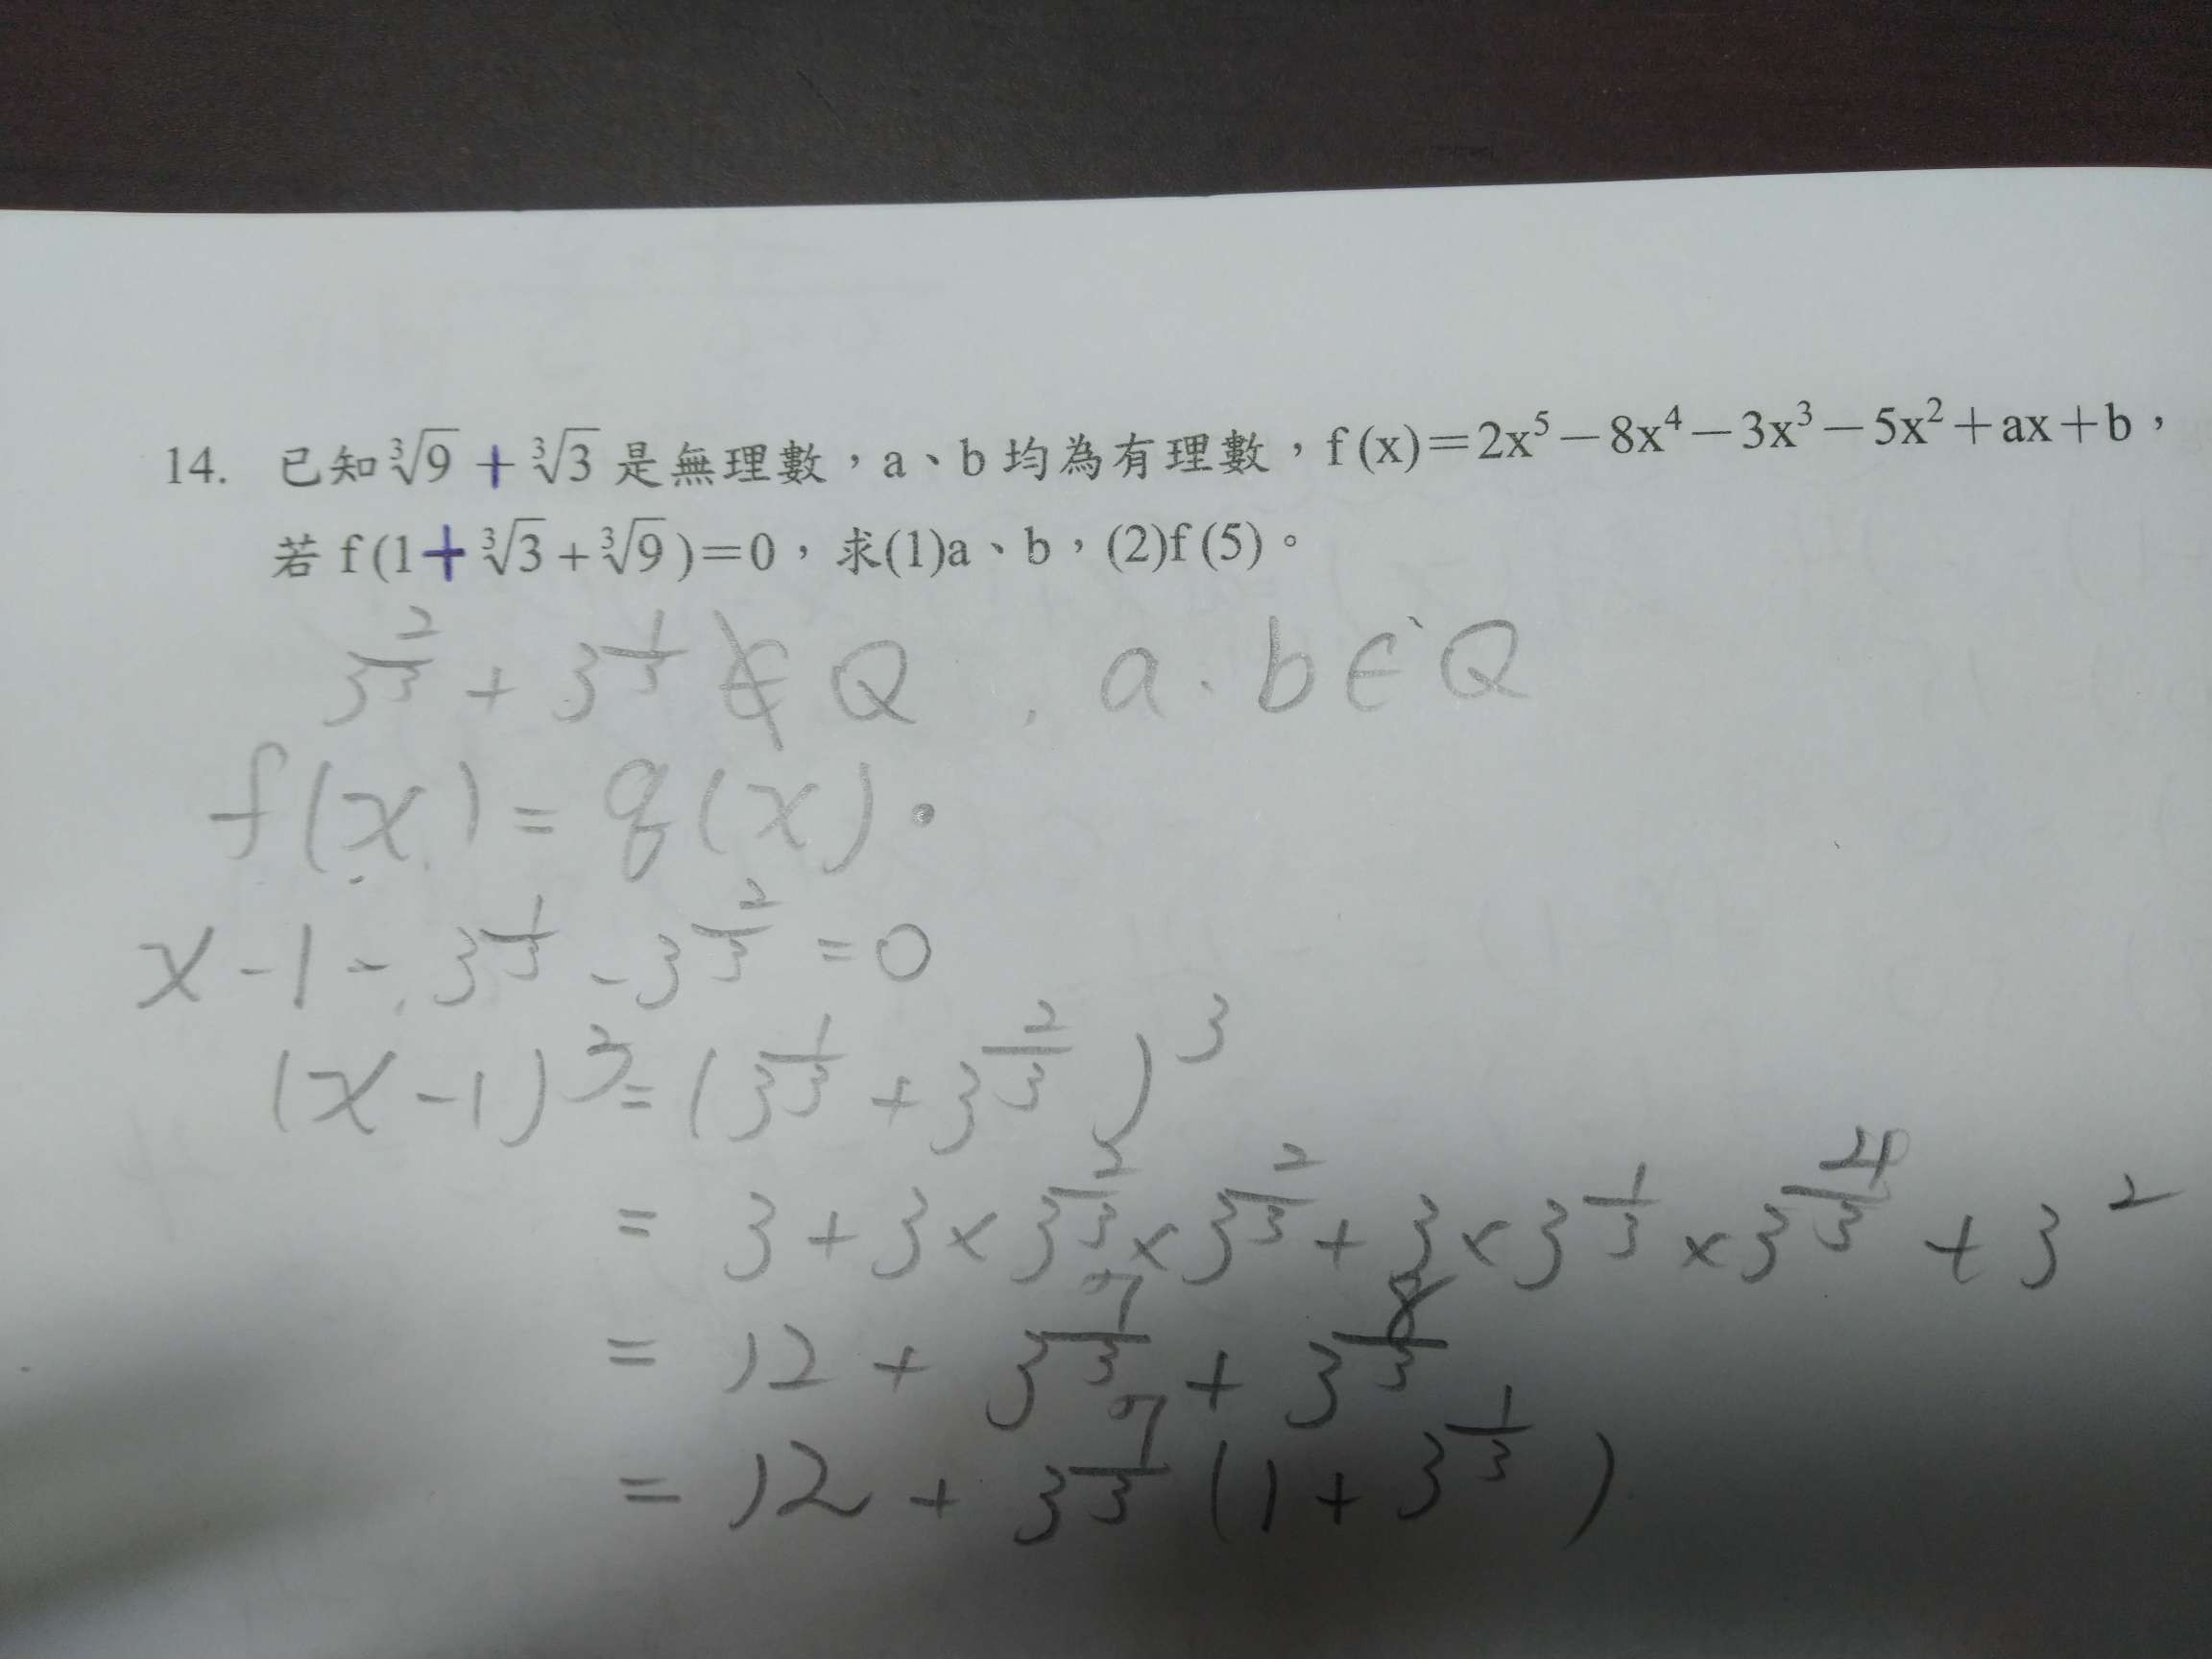 14. 已知∛9 + ∛3 是無理數，a、b 均為有理數，f (x)＝2x⁵－8x⁴－3x³－5x²＋ax＋b，
若 f (1+ ∛3 + ∛9 )＝0，求(1)a、b，(2)f (5)。
3^(2/3) + 3^(1/3) ∉ Q , a、b ∈ Q
f(x) = q(x)·
x - 1 - 3^(1/3) - 3^(2/3) = 0
(x - 1)³ = (3^(1/3) + 3^(2/3))³
= 3 + 3 × 3^(2/3) × 3^(2/3) + 3 × 3^(1/3) × 3^(4/3) + 3²
= 12 + 3^(7/3) + 3^(8/3)
= 12 + 3^(7/3) (1 + 3^(1/3))